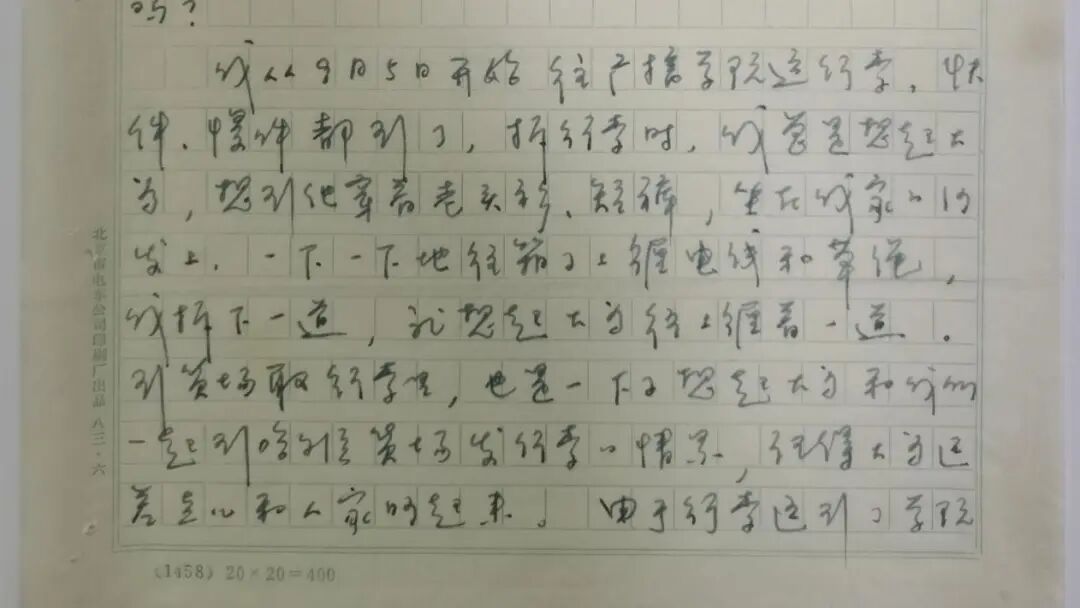 吗？
我从9月5日开始往广播学院运行李，快
件、慢件都到了，拆行李时，我总是想起大
为，想到他穿着老头衫、短裤，坐在我家的沙
发上，一下一下地往箱子上缠电线和草绳，
我拆下一道，就想起大为往上缠着一道。
到货场取行李里，也是一下子想起大为和我们
一起到哈尔滨货场发行李的情景，记得大为还
差点儿和人家吵起来。由于行李运到了学院
北京市电车公司印刷厂出品 八三·六
(1458) 20×20=400